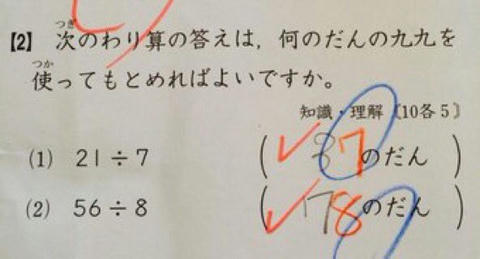 【2】 次のわり算の答えは，何のだんの九九を
つぎ
使ってもとめればよいですか。
つか
知識・理解〔10各5〕
(1) 21÷7 (3 7のだん)
(2) 56÷8 (17 8のだん)